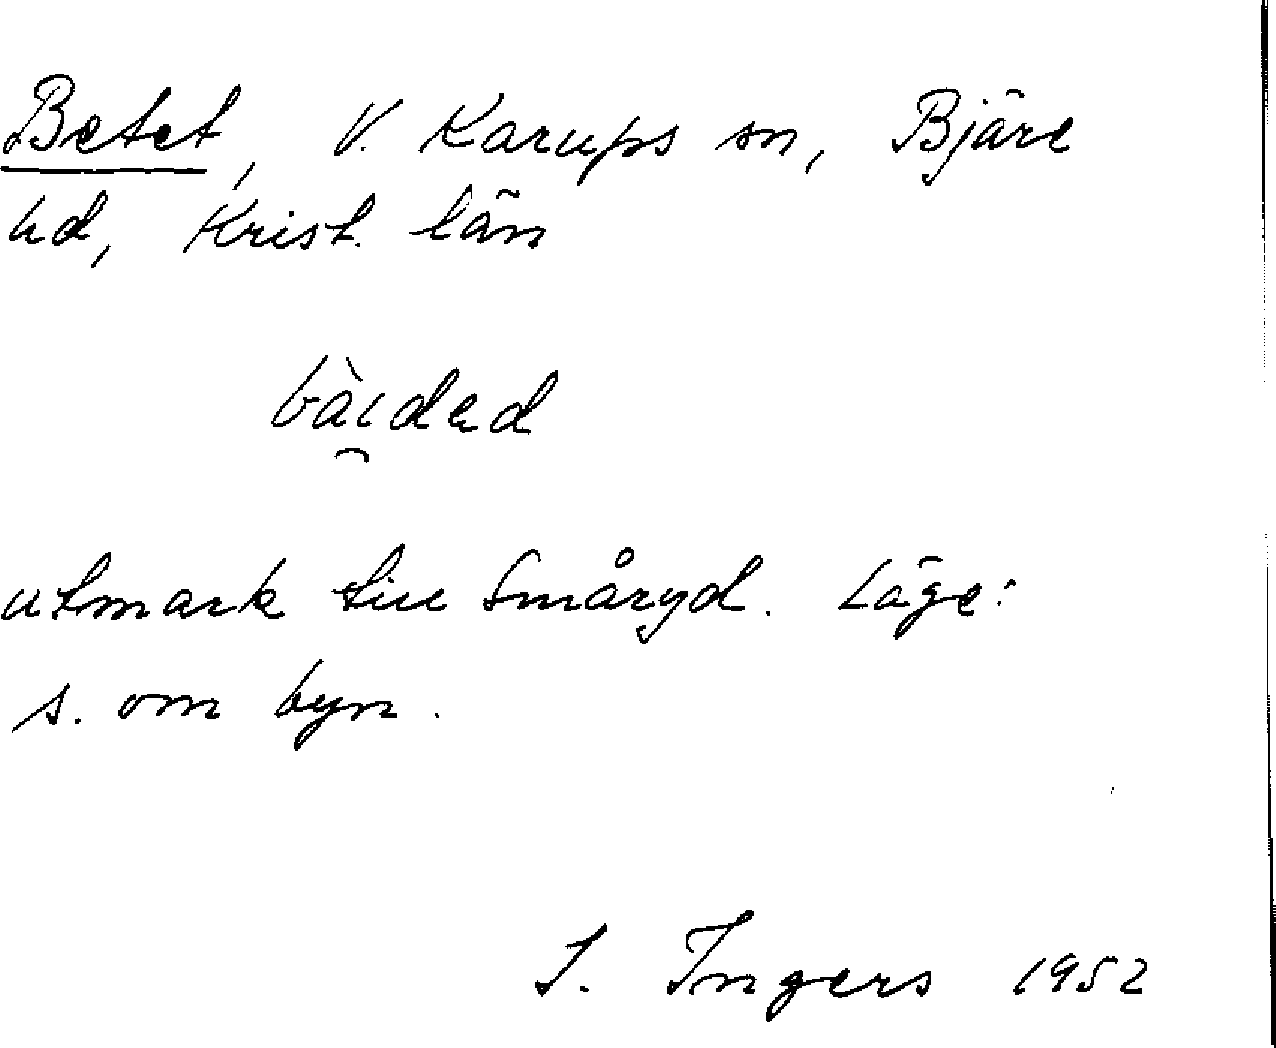 Betet, V. Karups sn, Bjäre
hd, Krist. län
bàıdəd
utmark till Småryd. Läge:
s. om byn.
I. Ingers 1952